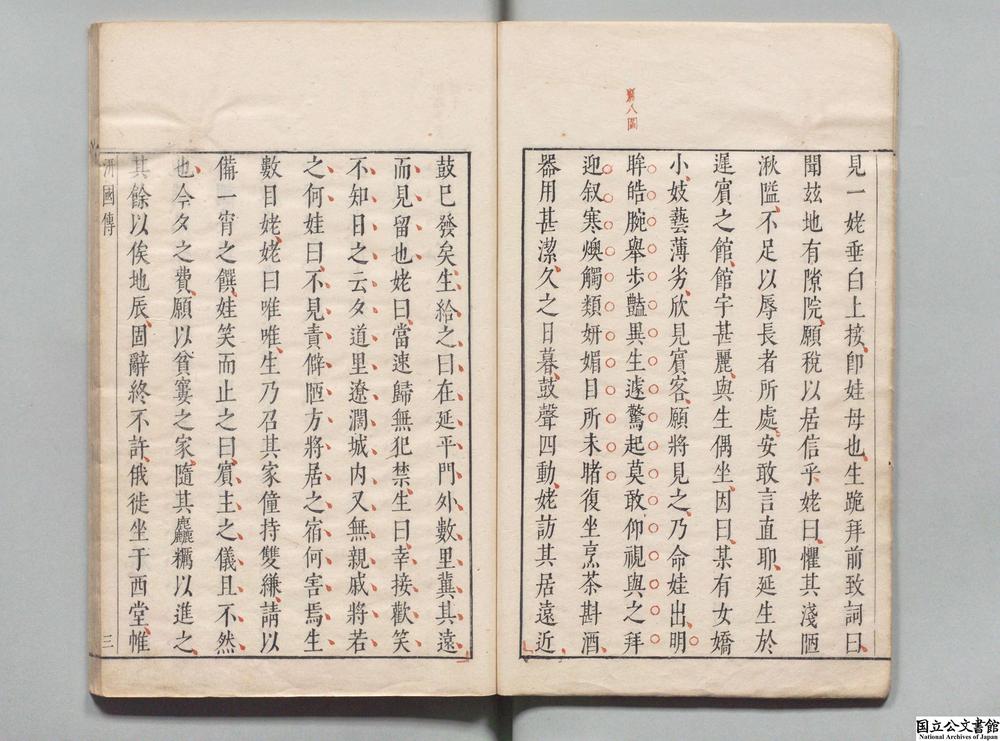 見一姥垂白上接卽娃母也生跪拜前致詞曰
聞玆地有隙院願稅以居信乎姥曰懼其淺陋
湫隘不足以辱長者所處安敢言直耶延生於
遲賓之館館宇甚麗與生偶坐因曰某有女嬌
小妓藝薄劣欣見賓客願將見之乃命娃出明
眸皓腕舉步豔異生遽驚起莫敢仰視與之拜
迎叙寒燠觸類妍媚目所未睹復坐烹茶斟酒
器用甚潔久之日暮鼓聲四動姥訪其居遠近
鼓已發矣生給之曰在延平門外數里冀其遠
而見留也姥曰當速歸無犯禁生曰幸接歡笑
不知日之云夕道里遼濶城内又無親戚將若
之何娃曰不見責僻陋方將居之宿何害焉生
數目姥姥曰唯唯生乃召其家僮持雙縑請以
備一宵之饌娃笑而止之曰賓主之儀且不然
也今夕之費願以貧窶之家隨其麤糲以進之
其餘以俟地辰固辭終不許俄徙坐于西堂帷
汧國傳
三
国立公文書館
National Archives of Japan